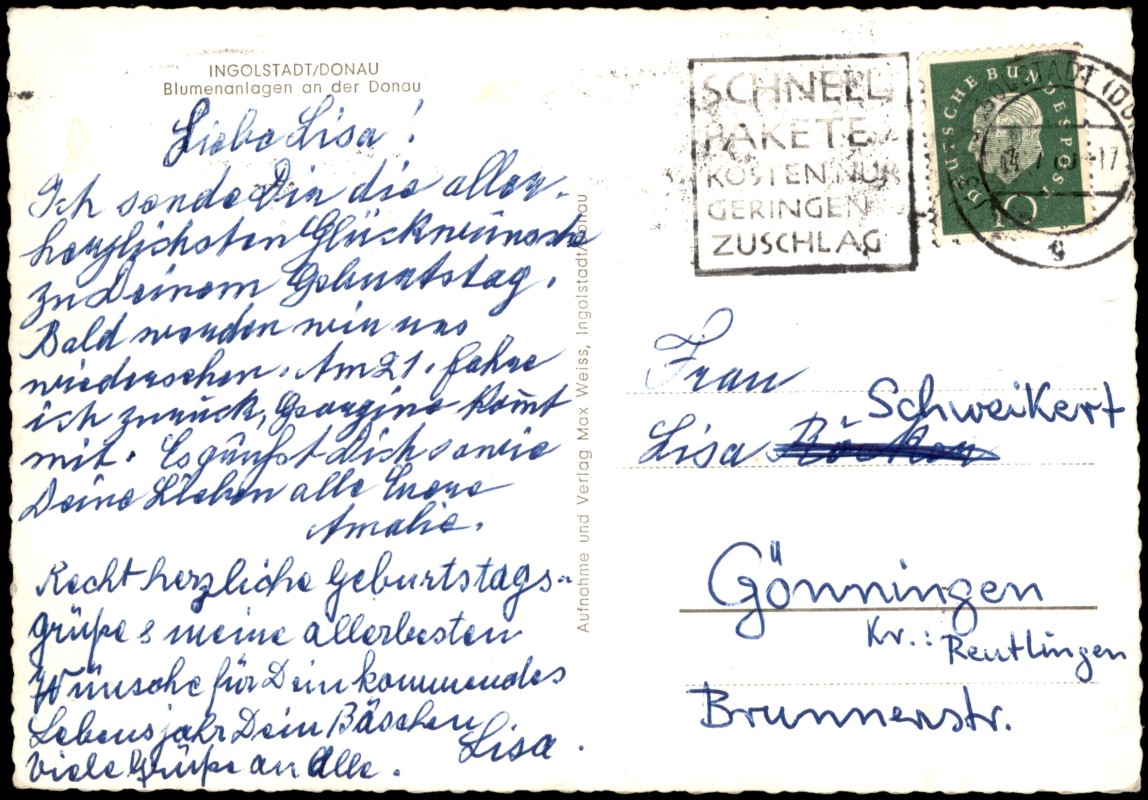 INGOLSTADT/DONAU
Blumenanlagen an der Donau
Liebe Lisa!
Ich sende Dir die aller-
herzlichsten Glückwünsche
zu Deinem Geburtstag.
Bald werden wir uns
wiedersehen. Am 21. fahre
ich zurück, Georgine kom̄t
mit. Es grüßt Dich sowie
Deine Lieben alle Eure
Amalie.
Recht herzliche Geburtstags-
grüße & meine allerbesten
Wünsche für Dein kommendes
Lebensjahr Dein Bäschen
Lisa.
Viele Grüße an Alle.
Aufnahme und Verlag Max Weiss, Ingolstadt/Donau
SCHNELL
PAKETE
KOSTEN NUR
GERINGEN
ZUSCHLAG
DEUTSCHE BUNDESPOST
10
g
Frau
Schweikert
Lisa
Gönningen
Kr.: Reutlingen
Brunnenstr.